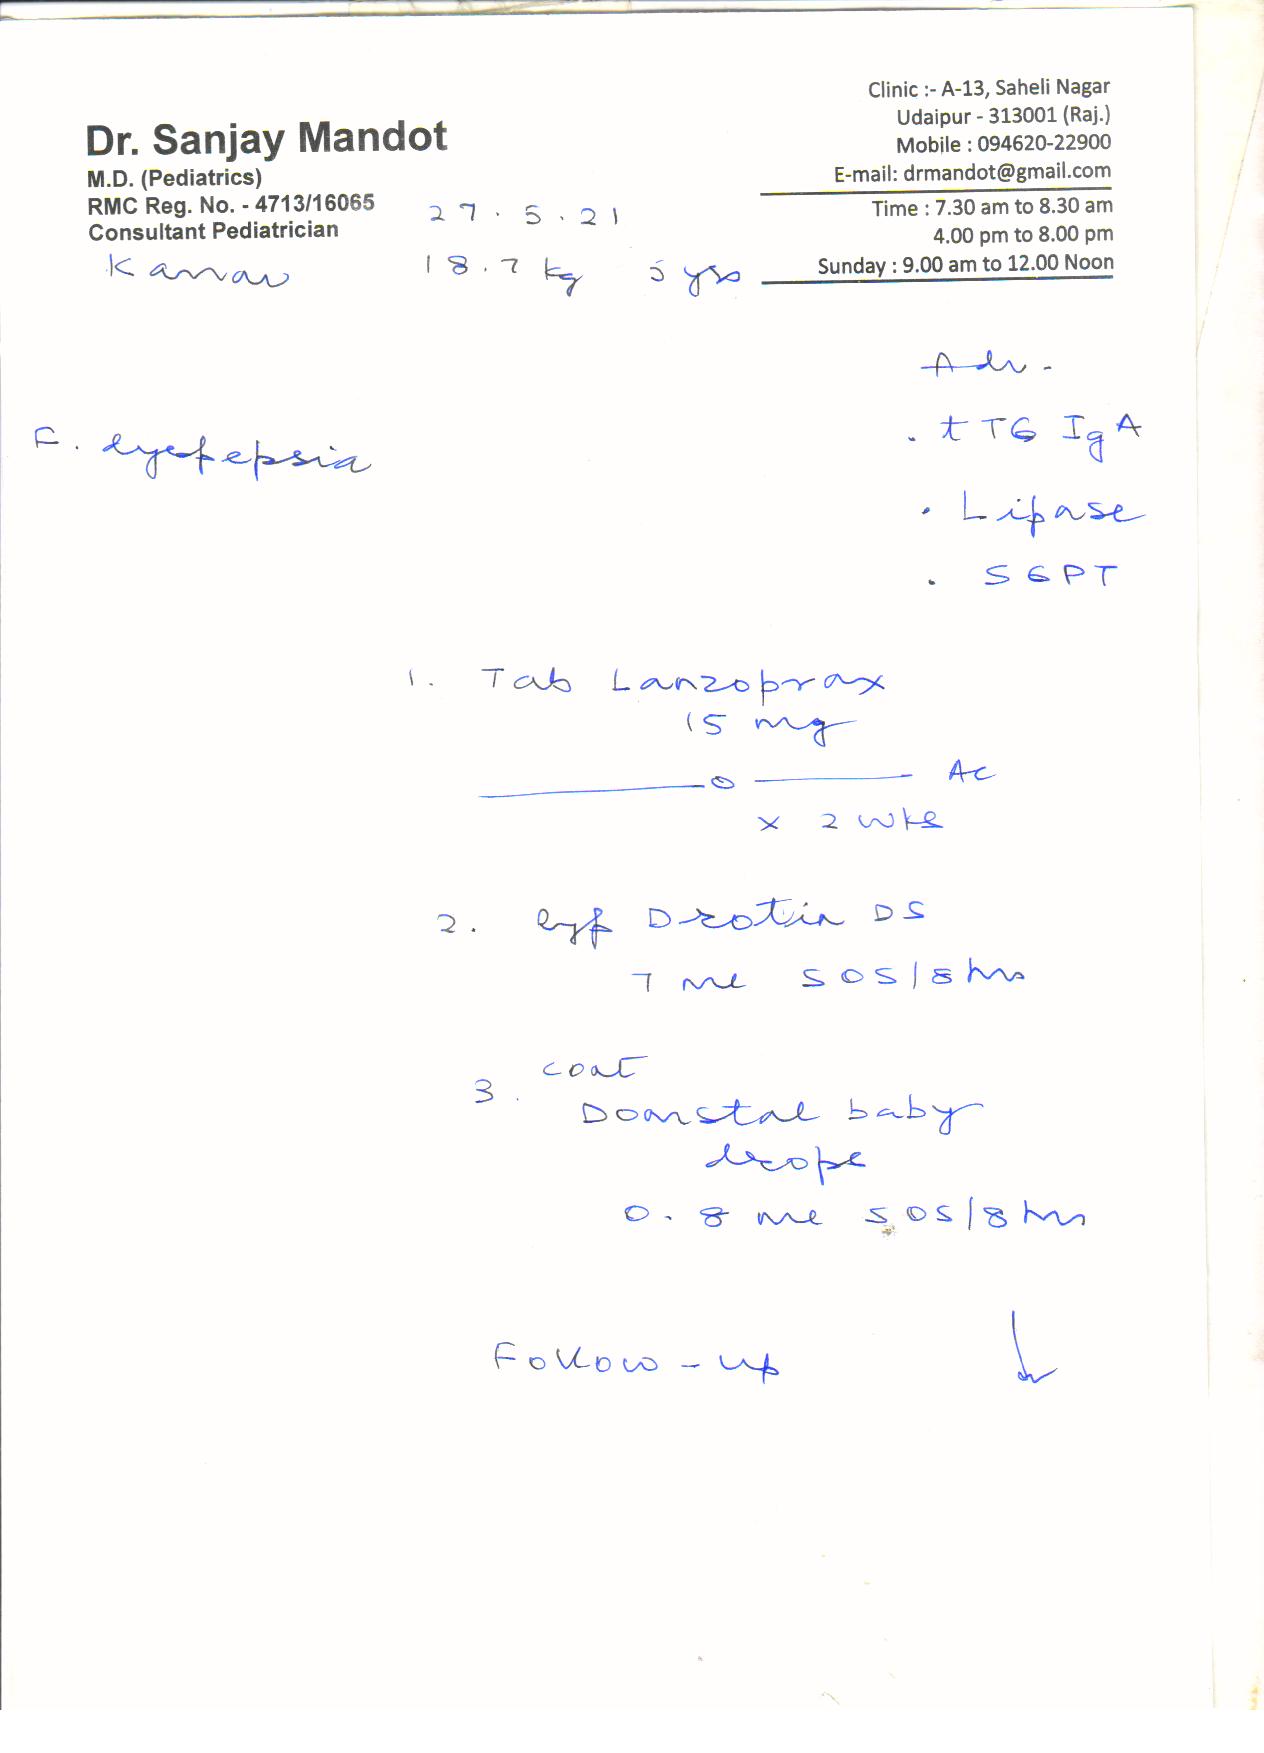 Dr. Sanjay Mandot
M.D. (Pediatrics)
RMC Reg. No. - 4713/16065
Consultant Pediatrician
Clinic :- A-13, Saheli Nagar
Udaipur - 313001 (Raj.)
Mobile : 094620-22900
E-mail: drmandot@gmail.com
Time : 7.30 am to 8.30 am
4.00 pm to 8.00 pm
Sunday : 9.00 am to 12.00 Noon
27.5.21
Kanav 18.7 kg 5 yrs
Adv.
. tTG IgA
. Lipase
. SGPT
F. dyspepsia
1. Tab Lanzoprax
15 mg
AC
x 2 wks
2. Syp Drotin DS
7 ml SOS/8 hrs
3. cont
Domstal baby
drops
0.8 ml SOS/8 hrs
Follow-up